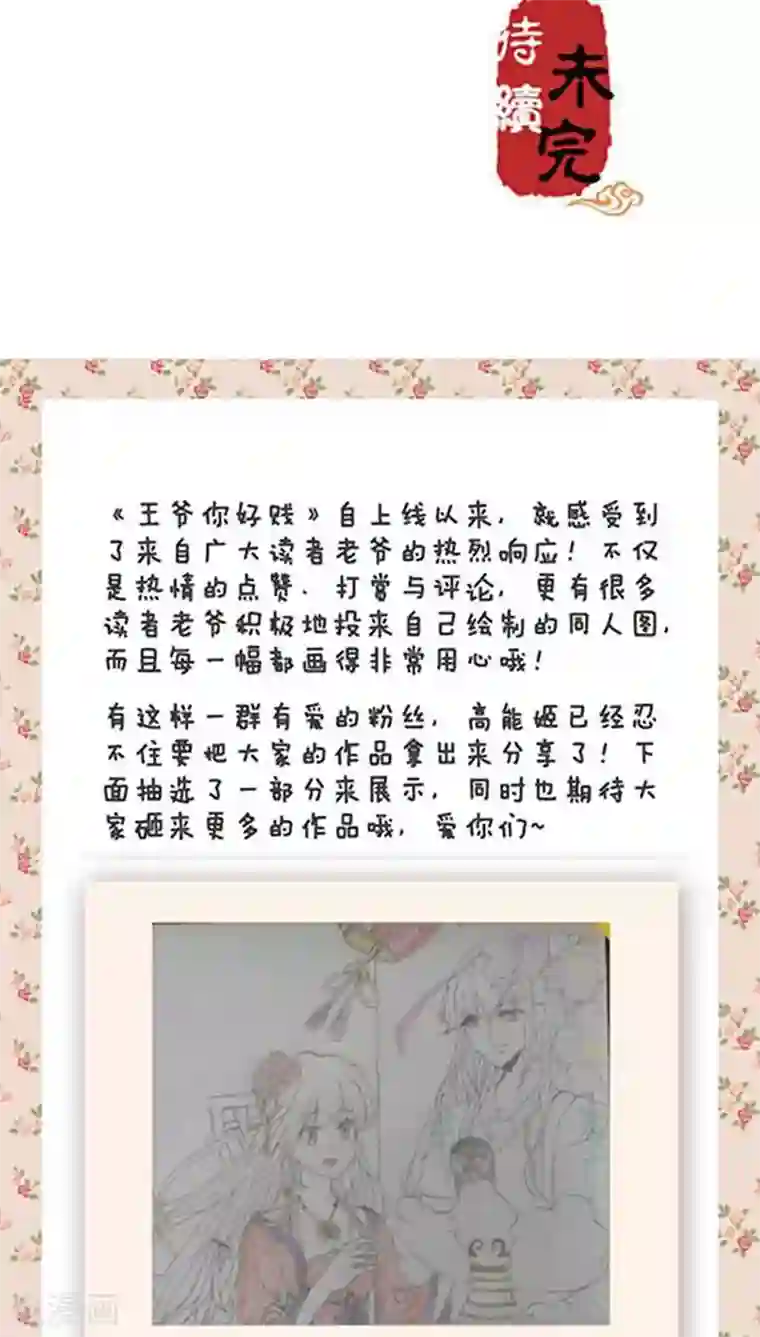 未完
待續
《王爷你好贱》自上线以来，就感受到
了来自广大读者老爷的热烈响应！不仅
是热情的点赞、打赏与评论，更有很多
读者老爷积极地投来自己绘制的同人图，
而且每一幅都画得非常用心哦！
有这样一群有爱的粉丝，高能姬已经忍
不住要把大家的作品拿出来分享了！下
面抽选了一部分来展示，同时也期待大
家砸来更多的作品哦，爱你们~
漫画